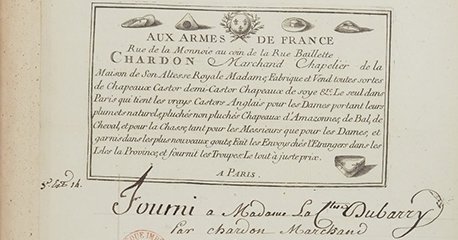 AUX ARMES DE FRANCE
Rue de la Monnoie au coin de la Rue Baillette
CHARDON Marchand Chapelier de la
Maison de Son Altesse Royale Madame, Fabrique et Vend toutes sortes
de Chapeaux Castor demi-Castor Chapeaux de soye &c. Le seul dans
Paris qui tient les vrays Castors Anglais pour les Dames portant leurs
plumets naturels, pluchés non pluchés Chapeaux d'Amazonnes, de Bal, de
Cheval, et pour la Chasse, tant pour les Messieurs que pour les Dames, et
garnis dans les plus nouveaux gouts, Fait les Envoys chés l'Etrangers dans les
Isles la Province, et fournit les Troupes. Le tout à juste prix.
A PARIS.
14.
Fourni a Madame La C.tesse Dubarry
Par chardon Marchand